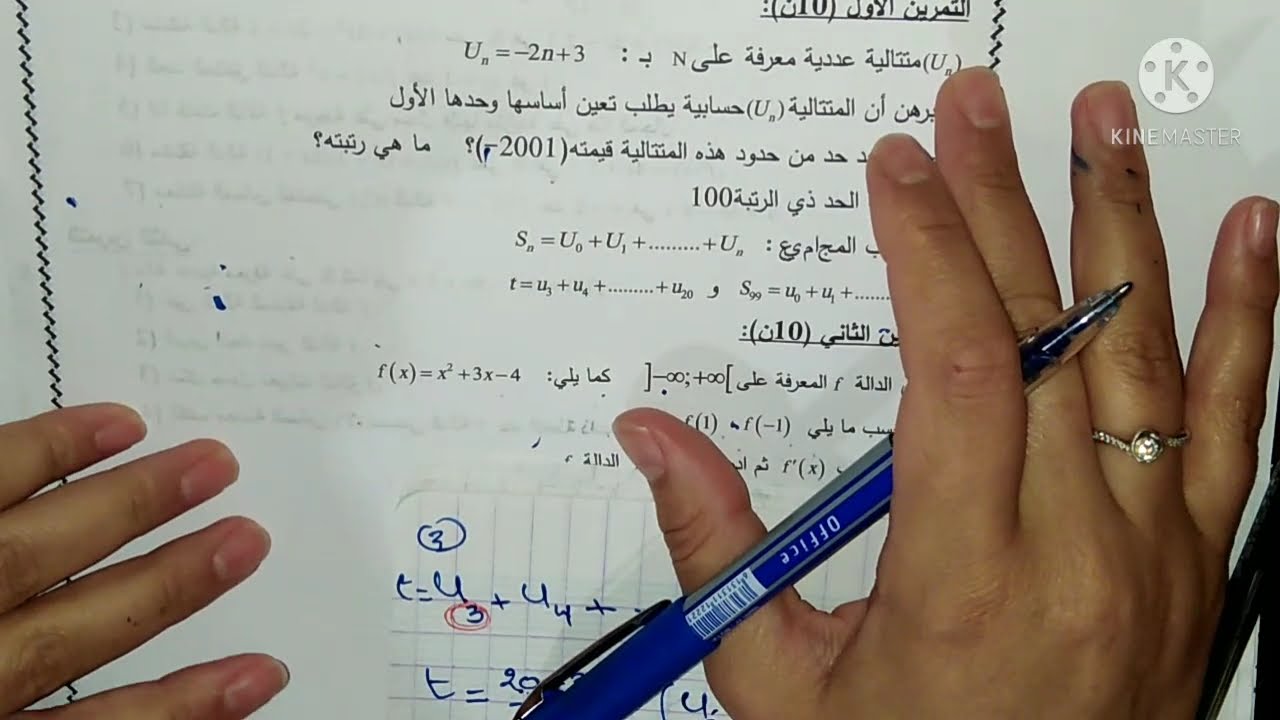 التمرين الأول (10ن):
(U_n) متتالية عددية معرفة على N بـ : U_n = -2n+3
برهن أن المتتالية (U_n) حسابية يطلب تعين أساسها وحدها الأول
حد من حدود هذه المتتالية قيمته (-2001)؟ ما هي رتبته؟
الحد ذي الرتبة 100
المجاميع : S_n = U_0 + U_1 + ......... + U_n
S_99 = u_0 + u_1 + ........ و t = u_3 + u_4 + ........ + u_20
الثاني (10ن):
الدالة f المعرفة على ]-∞;+∞[ كما يلي: f(x) = x² + 3x - 4
ما يلي f(-1) ، f(1)
f'(x) ثم الدالة f
3
t = U_3 + U_4 +
t =
KINEMASTER
K
OFFICE